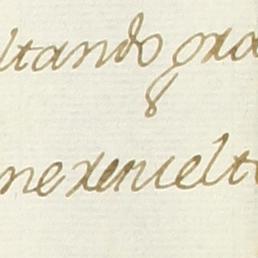 ltando gra
nexenuelto